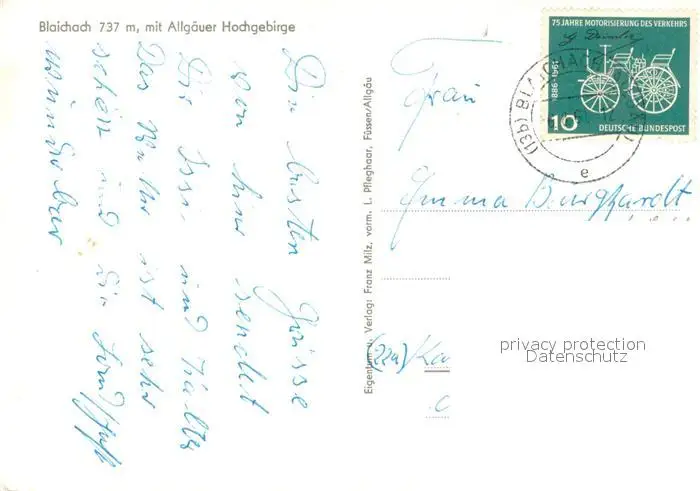 Blaichach 737 m, mit Allgäuer Hochgebirge
Die besten Grüsse
von hier sendet
Dir Issi und
Das Wetter ist sehr
schön und die Landschaft
wunderbar
Eigentum u. Verlag: Franz Milz, vorm. L. Pfleghaar, Füssen/Allgäu
75 JAHRE MOTORISIERUNG DES VERKEHRS
G Daimler
1886-1961
10
DEUTSCHE BUNDESPOST
(13b) BLAICHACH
e
Frau
Emma Burghardt
(22a) Ka
privacy protection
Datenschutz